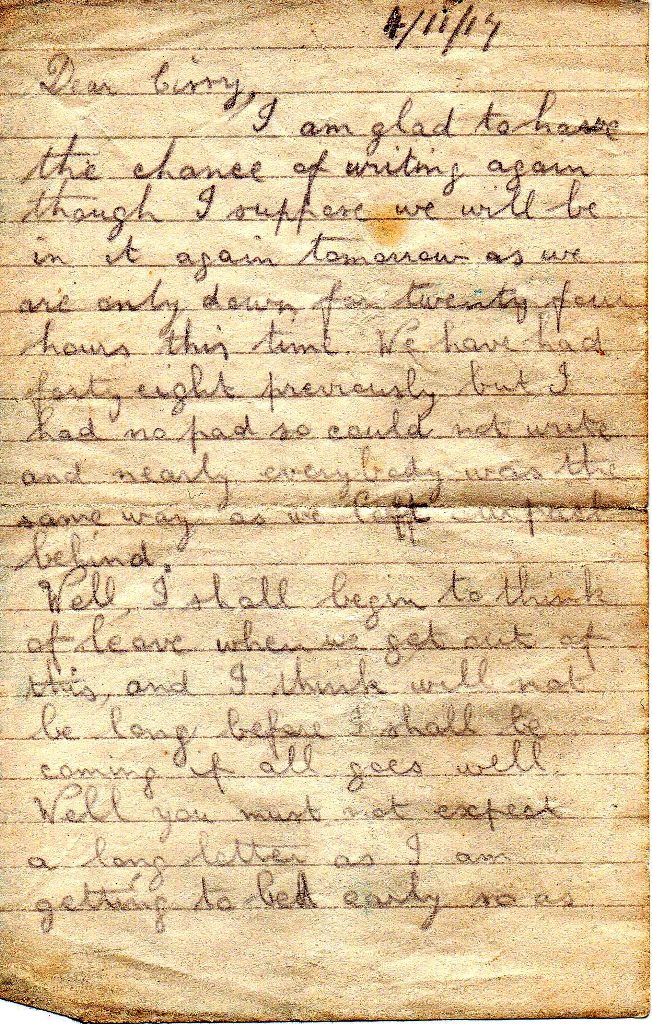 4/11/17
Dear Cissy,
I am glad to have
the chance of writing again
though I suppose we will be
in it again tomorrow as we
are only down for twenty four
hours this time. We have had
forty eight previously but I
had no pad so could not write
and nearly everybody was the
same way as we left our pack
behind.
Well, I shall begin to think
of leave when we get out of
this, and I think will not
be long before I shall be
coming if all goes well.
Well you must not expect
a long letter as I am
getting to bed early so as